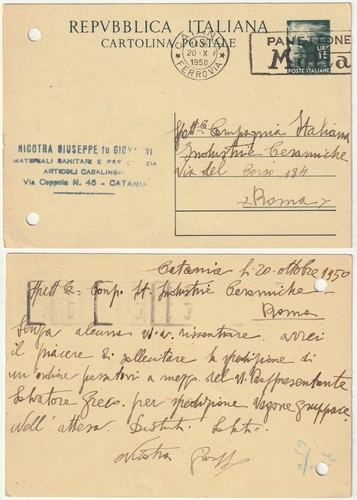 REPVBBLICA ITALIANA
CARTOLINA POSTALE
CATANIA
20-X
1950
FERROVIA
PANETTONE
Motta
LIRE
POSTE ITALIANE
NICOTRA GIUSEPPE fu GIOVANNI
MATERIALI SANITARI E PER
ARTICOLI CASALINGHI
Via Coppola N. 45 - CATANIA
Spett.e Compagnia Italiana
Industrie Ceramiche
Via del Corso 184
Roma
Catania li 20 ottobre 1950
Spett.e Comp. It. Industrie Ceramiche
Roma
Senza alcuna riscontrare avrei
il piacere di sollecitare la spedizione di
un ordine passatovi a mezzo del Vs. Rappresentante
Salvatore Greco per spedizione Vagone gruppage
Nell'attesa Distinti Saluti
Nicotra